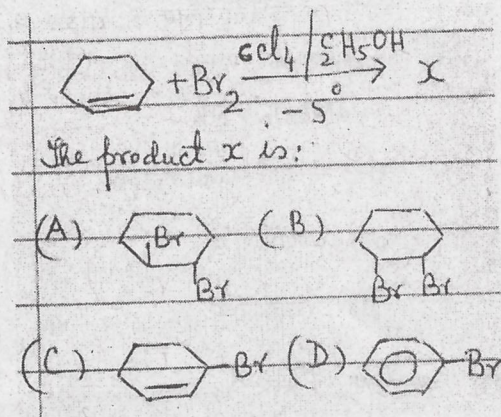 + Br2 CCl4 / C2H5OH -5° x
The product x is:
(A) Br Br (B) Br Br
(C) Br (D) Br